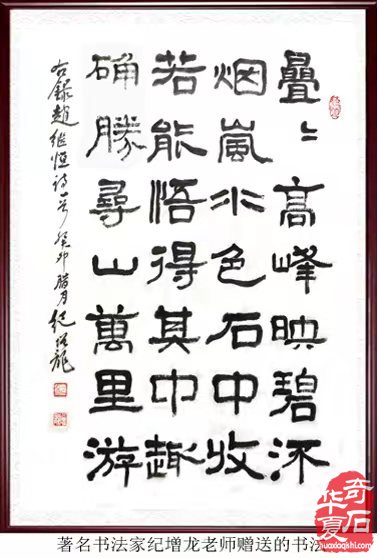 疊〻高峰映碧流
烟嵐水色石中收
若能悟得其中趣
确勝尋山萬里游
右錄趙继恒诗一首 癸卯腊月纪增龙
著名书法家纪增龙老师赠送的书法
华夏奇石